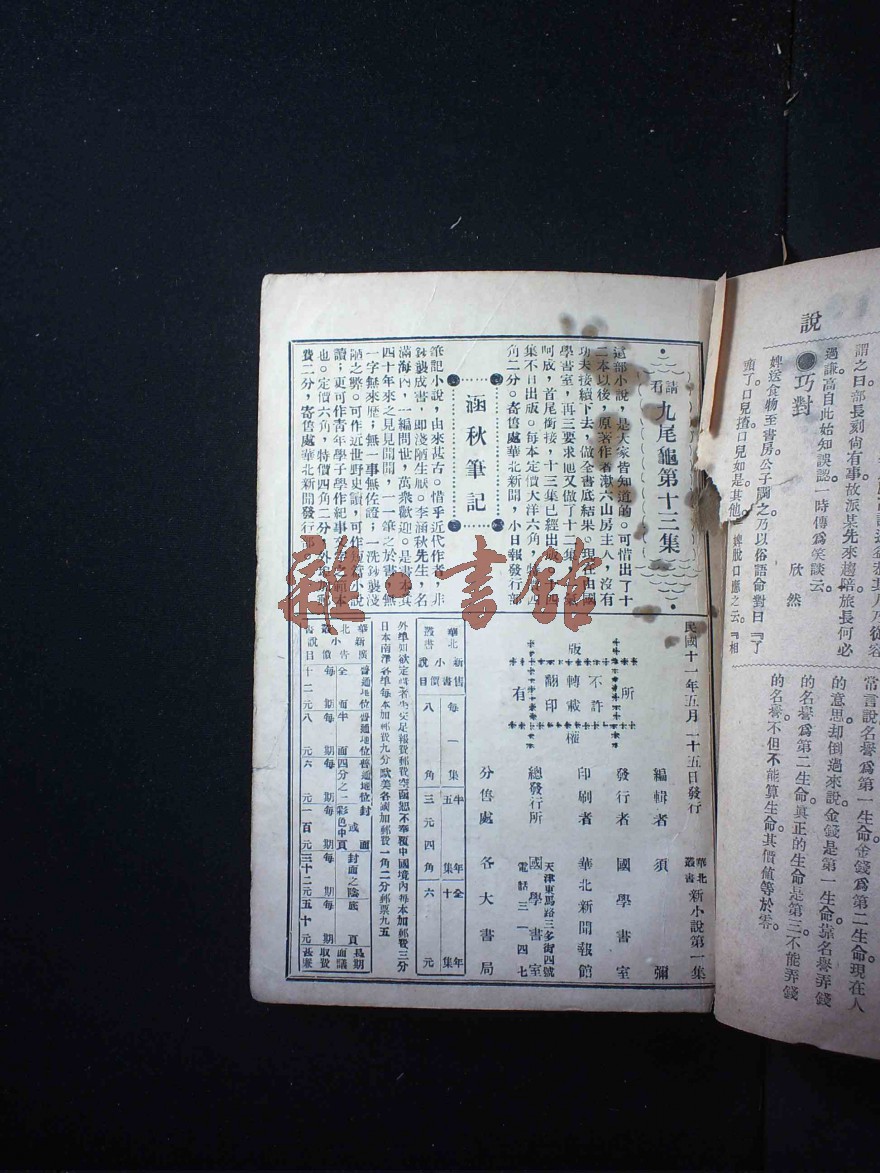 說
謂之曰部長刻尚有事故派某先來趨陪旅長何必
過謙高自此始知誤認一時傳爲笑談云。
●巧對
欣然
婢送食物至書房。公子調之乃以俗語命對曰『了
頭了口兒揸口兒如是其他。』婢脫口應之云。『相
常言說名譽爲第一生命金錢爲第二生命現在人
的意思却倒過來說。金錢是第一生命靠名譽弄錢
的名譽爲第二生命。真正的生命是第三不能弄錢
的名譽不但不能算生命。其價值等於零。
請看
九尾龜第十三集
這部小說，是大家皆知道的。可惜出了十
二本以後，原著作者漱六山房主人，沒有
功夫接續下去，做全書底結果。現在由國
學書室，再三要求他又做了十二集，
呵成，首尾銜接，十三集已經出版，十四
集不日出版。每本定價大洋六角，特價四
角二分。寄售處華北新聞，小日報發行部
涵秋筆記
筆記小說，由來甚古。惜乎近代作者，非
鈔襲成書，即淺陋生厭。李涵秋先生，名
滿海內，一編問世，萬衆歡迎。是書本其
四十年來之見見聞聞，一一筆之於書，無
一字無來歷；無一事無佐證；一洗鈔襲淺
陋之弊。可作近世野史讀，可作短篇小說
讀；更可作青年學子學作紀事
也。定價六角，特價四角二分。外埠
費二分，寄售處華北新聞發行部
民國十一年五月二十五日發行
華北叢書
新小說第一集
版權所有
不許轉載翻印
編輯者 須彌
發行者 國學書室
印刷者 華北新聞報館
總發行所 國學書室
天津東馬路三多街四號
電話三一四七
分售處 各大書局
華北叢書
新小說
售書價目
每一集 八角
半年五集 三元四角
全年十集 六元
外埠如欲定購者須先交足報費郵費空函恕不奉覆中國境內每本加郵費三分
日本南洋各埠每本加郵費九分歐美各國加郵費一角二分郵票九五
華北叢書
新小說
廣告價目
普通地位全面每期十二元
普通地位半面每期八元
普通地位四分之一每期六元
封面或彩色中頁每期一百元
封面之陰每期三十二元
底頁每期五十元
長期面議取費甚廉
雜·書館